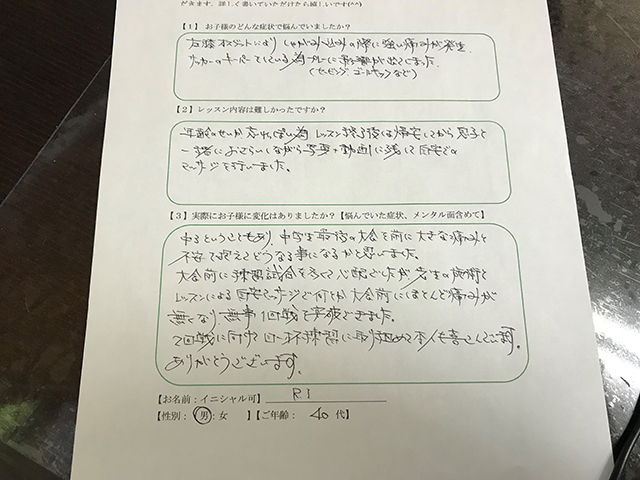 だきます。詳しく書いていただけたら嬉しいです(^^)
【1】 お子様のどんな症状で悩んでいましたか?
右膝オスグットにより しゃがみ込みの際に強い痛みが発生
サッカーのキーパーをしている為プレーに影響が出てしまった
(セービング、ゴールキックなど)
【2】レッスン内容は難しかったですか?
年齢のせいか忘れっぽい為 レッスン終了後は帰宅してから息子と
一緒におさらいしながら写真や動画に残して自宅での
マッサージを行いました。
【3】実際にお子様に変化はありましたか?【悩んでいた症状、メンタル面含めて】
中3ということもあり、中学生最後の大会を前に大きな痛みと
不安を抱えてどうなる事になるかと思いました。
大会前に練習試合を 心配でしたが 先生の施術と
レッスンによる自宅マッサージで何とか大会前にほとんど痛みが
無くなり、無事1回戦を突破できました。
2回戦に向けて目一杯練習に取り組めて本人も喜んでいます。
ありがとうございます。
【お名前:イニシャル可】 R I
【性別: 男:女 】【ご年齢: 40 代】